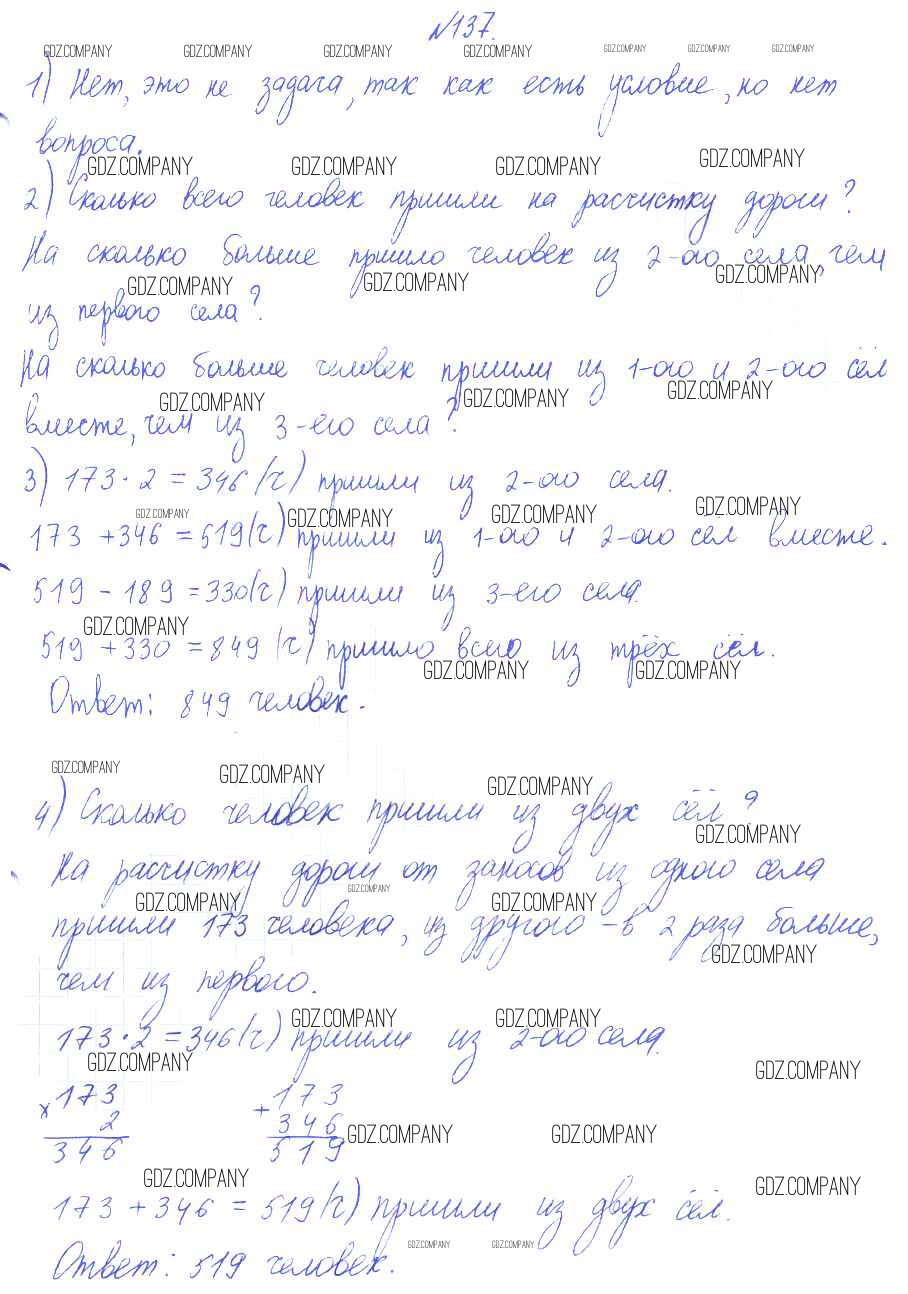 №137.
GDZ.COMPANY GDZ.COMPANY GDZ.COMPANY GDZ.COMPANY GDZ.COMPANY GDZ.COMPANY GDZ.COMPANY
1) Нет, это не задача, так как есть условие, но нет
вопроса.
GDZ.COMPANY GDZ.COMPANY GDZ.COMPANY GDZ.COMPANY
2) Сколько всего человек пришли на расчистку дороги?
На сколько больше пришло человек из 2-ого села, чем
GDZ.COMPANY GDZ.COMPANY GDZ.COMPANY
из первого села?
На сколько больше человек пришли из 1-ого и 2-ого сёл
GDZ.COMPANY GDZ.COMPANY GDZ.COMPANY
вместе, чем из 3-его села?
3) 173·2=346(ч) пришли из 2-ого села.
GDZ.COMPANY GDZ.COMPANY GDZ.COMPANY GDZ.COMPANY
173+346=519(ч) пришли из 1-ого и 2-ого сел вместе.
519-189=330(ч) пришли из 3-его села.
GDZ.COMPANY
519+330=849(ч) пришло всего из трёх сёл.
GDZ.COMPANY GDZ.COMPANY
Ответ: 849 человек.
GDZ.COMPANY GDZ.COMPANY GDZ.COMPANY
4) Сколько человек пришли из двух сёл?
GDZ.COMPANY
На расчистку дороги от заносов из одного села
GDZ.COMPANY GDZ.COMPANY GDZ.COMPANY
пришли 173 человека, из другого - в 2 раза больше,
GDZ.COMPANY
чем из первого.
GDZ.COMPANY GDZ.COMPANY
173·2=346(ч) пришли из 2-ого села.
GDZ.COMPANY GDZ.COMPANY
x 173 + 173
2 346
GDZ.COMPANY GDZ.COMPANY
346 519
GDZ.COMPANY GDZ.COMPANY
173+346=519(ч) пришли из двух сёл.
GDZ.COMPANY GDZ.COMPANY
Ответ: 519 человек.